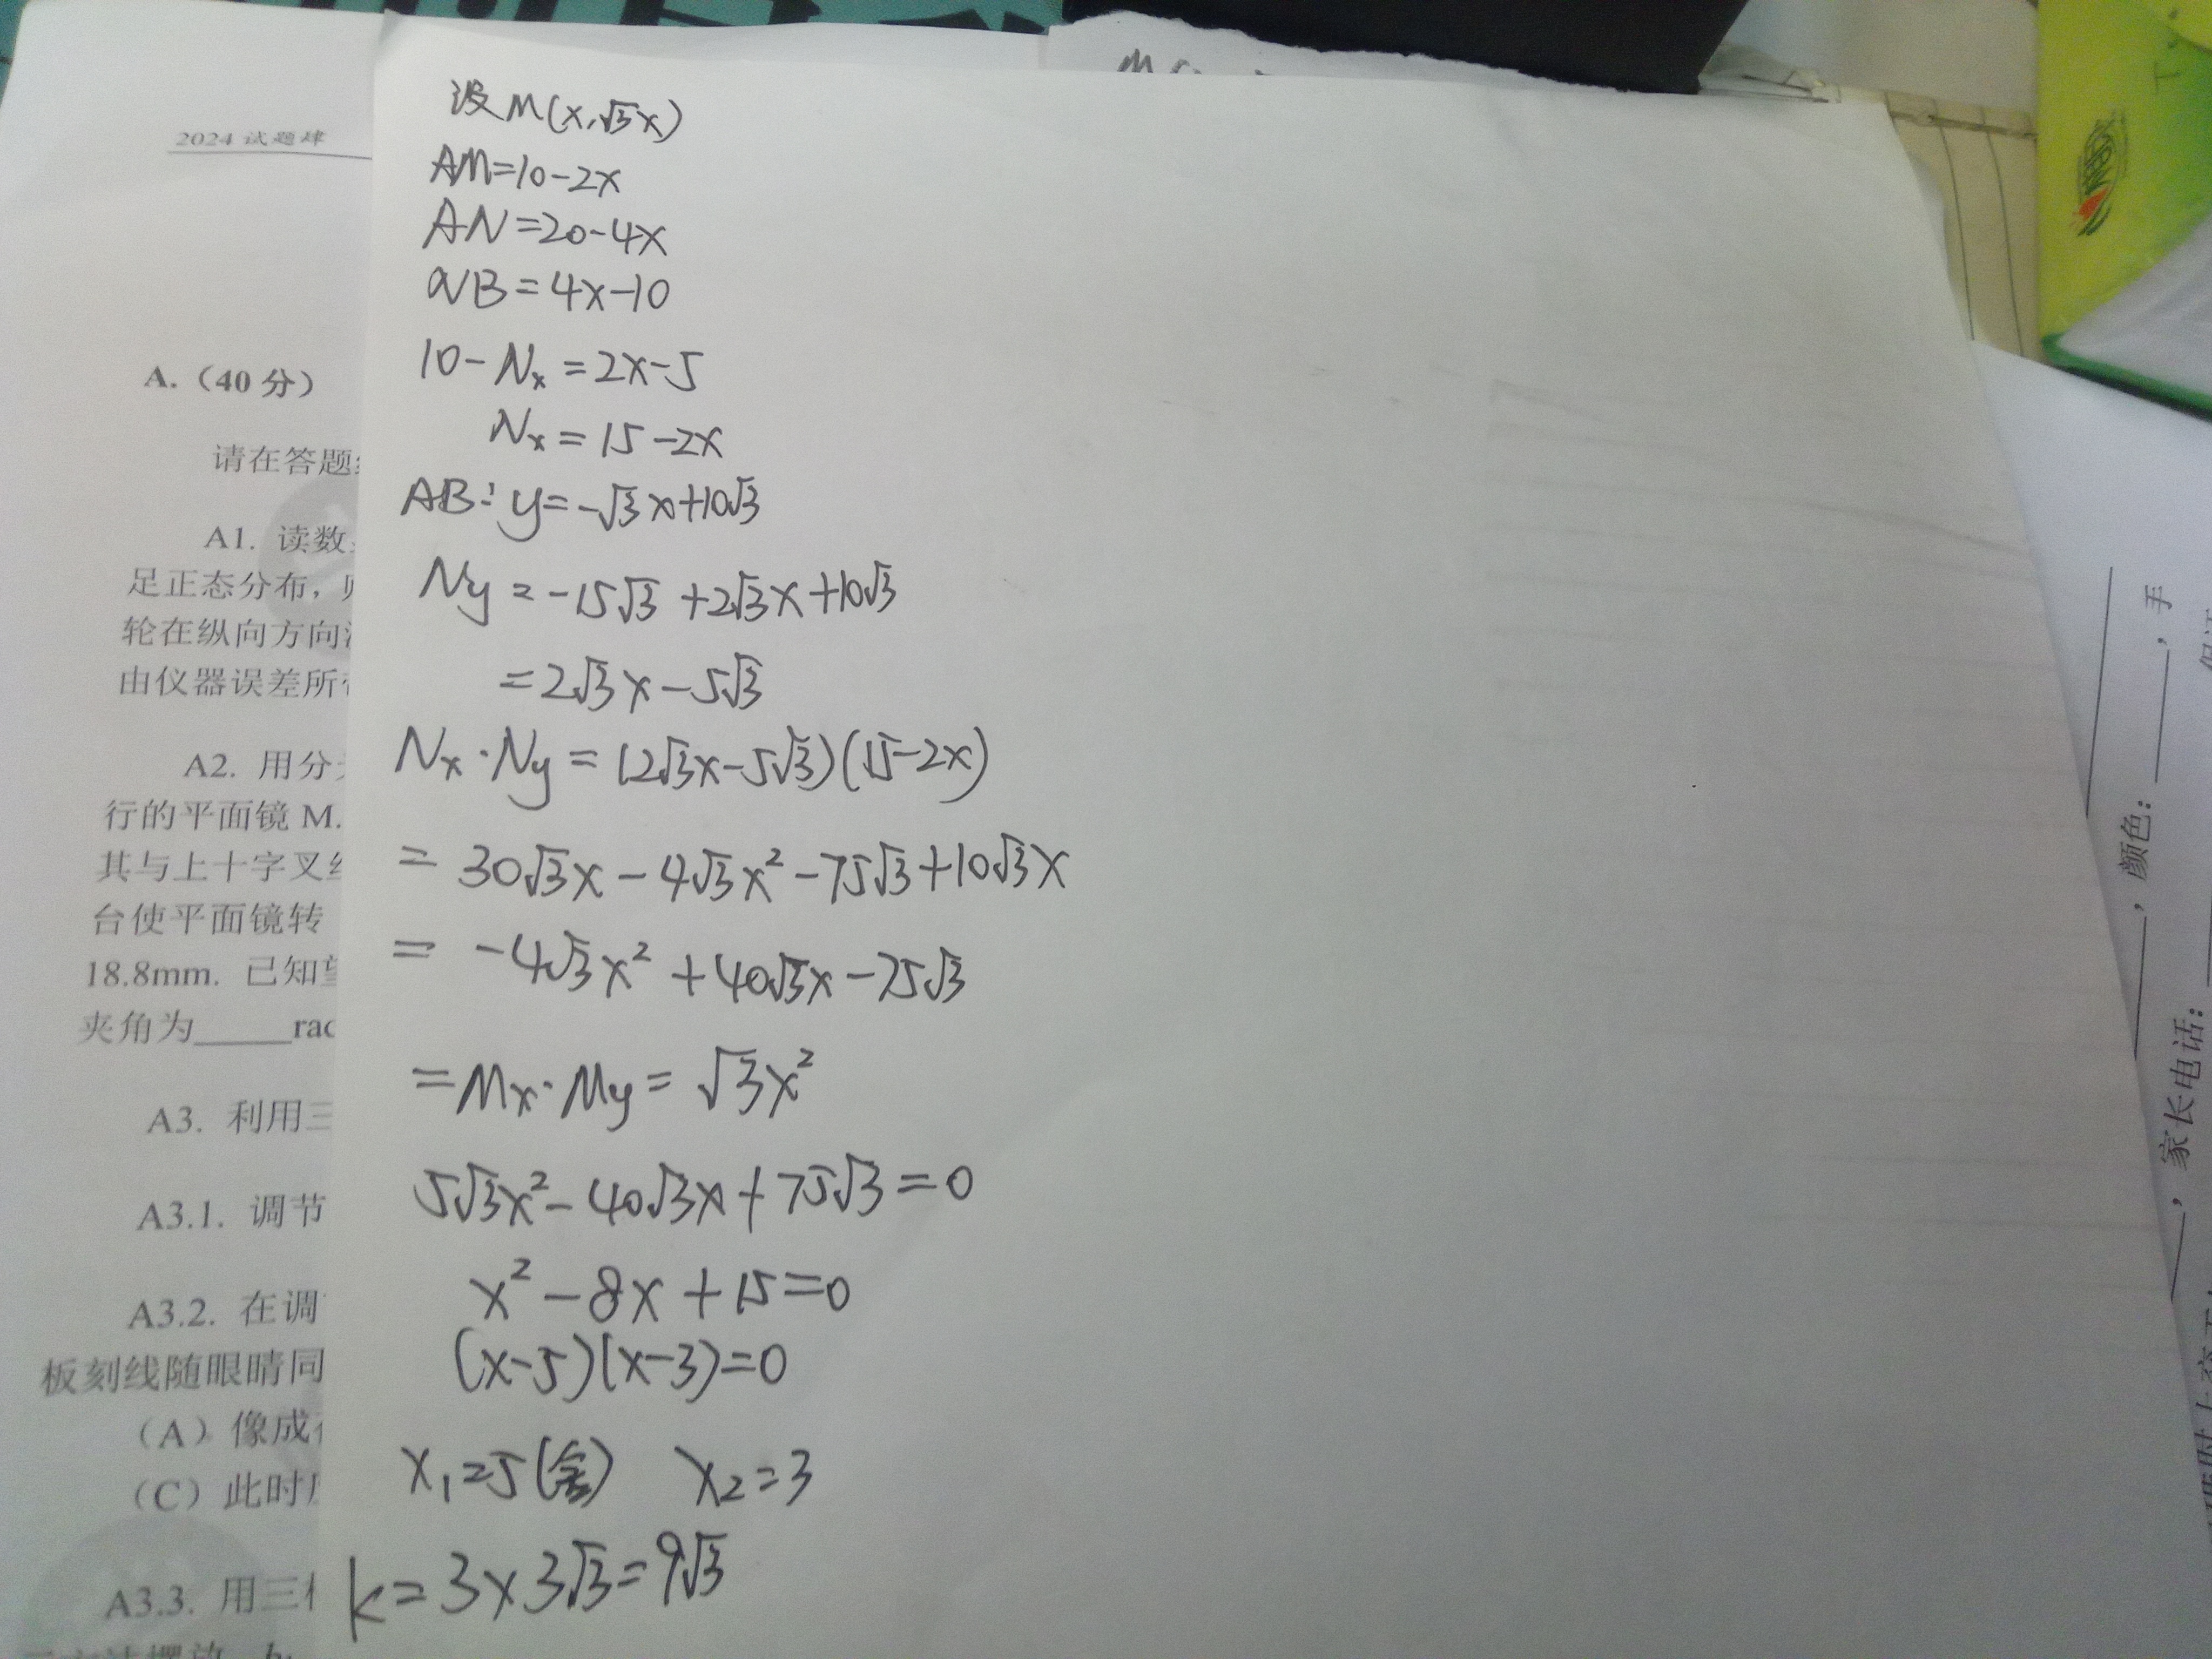 2024 试题肆
A.（40 分）
请在答题
A1. 读数
足正态分布，
轮在纵向方向
由仪器误差所
A2. 用分
行的平面镜 M.
其与上十字叉
台使平面镜转
18.8mm. 已知
夹角为_____rad
A3. 利用三
A3.1. 调节
A3.2. 在调
板刻线随眼睛同
（A）像成
（C）此时
A3.3. 用三
设M(x,√3x)
AM=10-2x
AN=20-4x
NB=4x-10
10-Nx=2x-5
Nx=15-2x
AB:y=-√3x+10√3
Ny=-15√3+2√3x+10√3
=2√3x-5√3
Nx·Ny=(2√3x-5√3)(15-2x)
=30√3x-4√3x²-75√3+10√3x
=-4√3x²+40√3x-75√3
=Mx·My=√3x²
5√3x²-40√3x+75√3=0
x²-8x+15=0
(x-5)(x-3)=0
x₁=5(舍) x₂=3
k=3×3√3=9√3
，手
，颜色：
，家长电话：